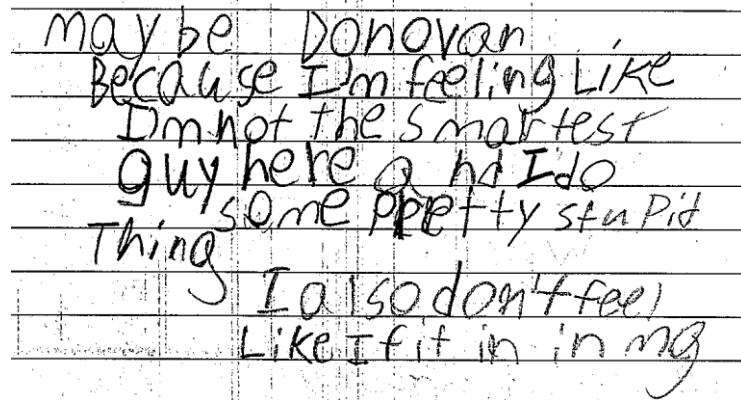 may be Donovan
Because I'm feeling Like
I'm not the smartest
guy here and I do
some pretty stupid
Thing
I also don't feel
Like I fit in in my